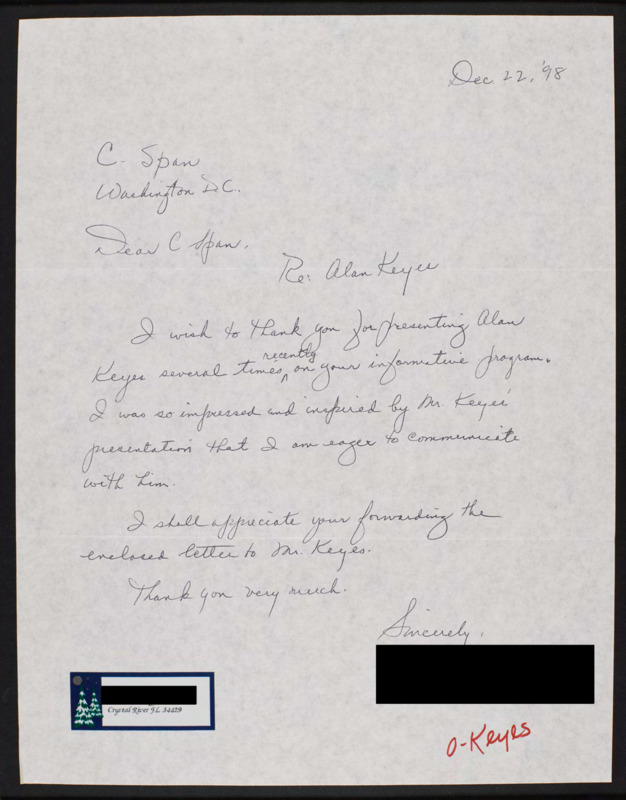 Dec. 22, '98
C- Span
Washington D.C.
Dear C Span,
Re: Alan Keyes
I wish to thank you for presenting Alan
Keyes several times recently on your informative program.
I was so impressed and inspired by Mr. Keyes'
presentation that I am eager to communicate
with him.
I shall appreciate your forwarding the
enclosed letter to Mr. Keyes.
Thank you very much.
Sincerely,
Crystal River FL 34429
O-Keyes